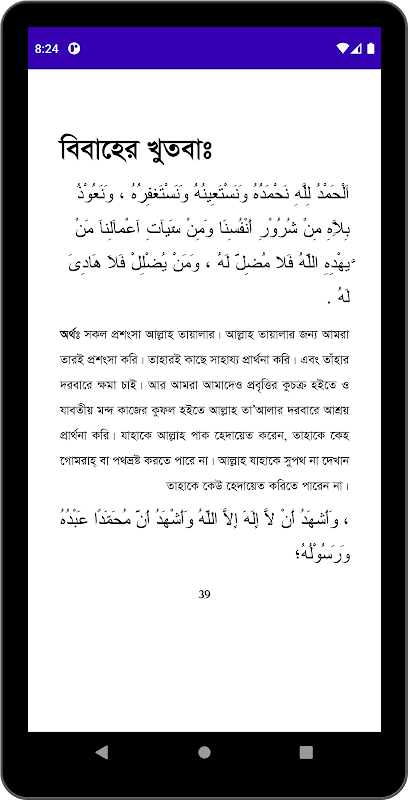 8:24
বিবাহের খুতবাঃ
اَلْحَمْدُ لِلَّهِ نَحْمَدُهُ وَنَسْتَعِينُهُ وَنَسْتَغْفِرُهُ ، وَنَعُوْذُ
بِلاَّهِ مِنْ شُرُوْرِ اَنْفُسِنَا وَمِنْ سَيَآتِ اَعْمَاَلِنِاَ مَنْ
يَّهْدِهِ اللّهُ فَلا مُضِلّ لَهُ ، وَمَنْ يُضْلِلْ فَلاَ هَادِىَ
لَهُ .
অর্থঃ সকল প্রশংসা আল্লাহ তায়ালার। আল্লাহ তায়ালার জন্য আমরা
তারই প্রশংসা করি। তাহারই কাছে সাহায্য প্রার্থনা করি। এবং তাঁহার
দরবারে ক্ষমা চাই। আর আমরা আমাদেও প্রবৃত্তির কুচক্র হইতে ও
যাবতীয় মন্দ কাজের কুফল হইতে আল্লাহ তা'আলার দরবারে আশ্রয়
প্রার্থনা করি। যাহাকে আল্লাহ পাক হেদায়েত করেন, তাহাকে কেহ
গোমরাহ্ বা পথভ্রষ্ট করতে পারে না। আল্লাহ যাহাকে সুপথ না দেখান
তাহাকে কেউ হেদায়েত করিতে পারেন না।
، وَأشهَدُ أنْ لاَّ إلَهَ إلاَّ اللّهُ وَأشْهَدُ أنّ مُحَمَّدًا عَبْدُهُ
وَرَسُوْلُهُ؛
39